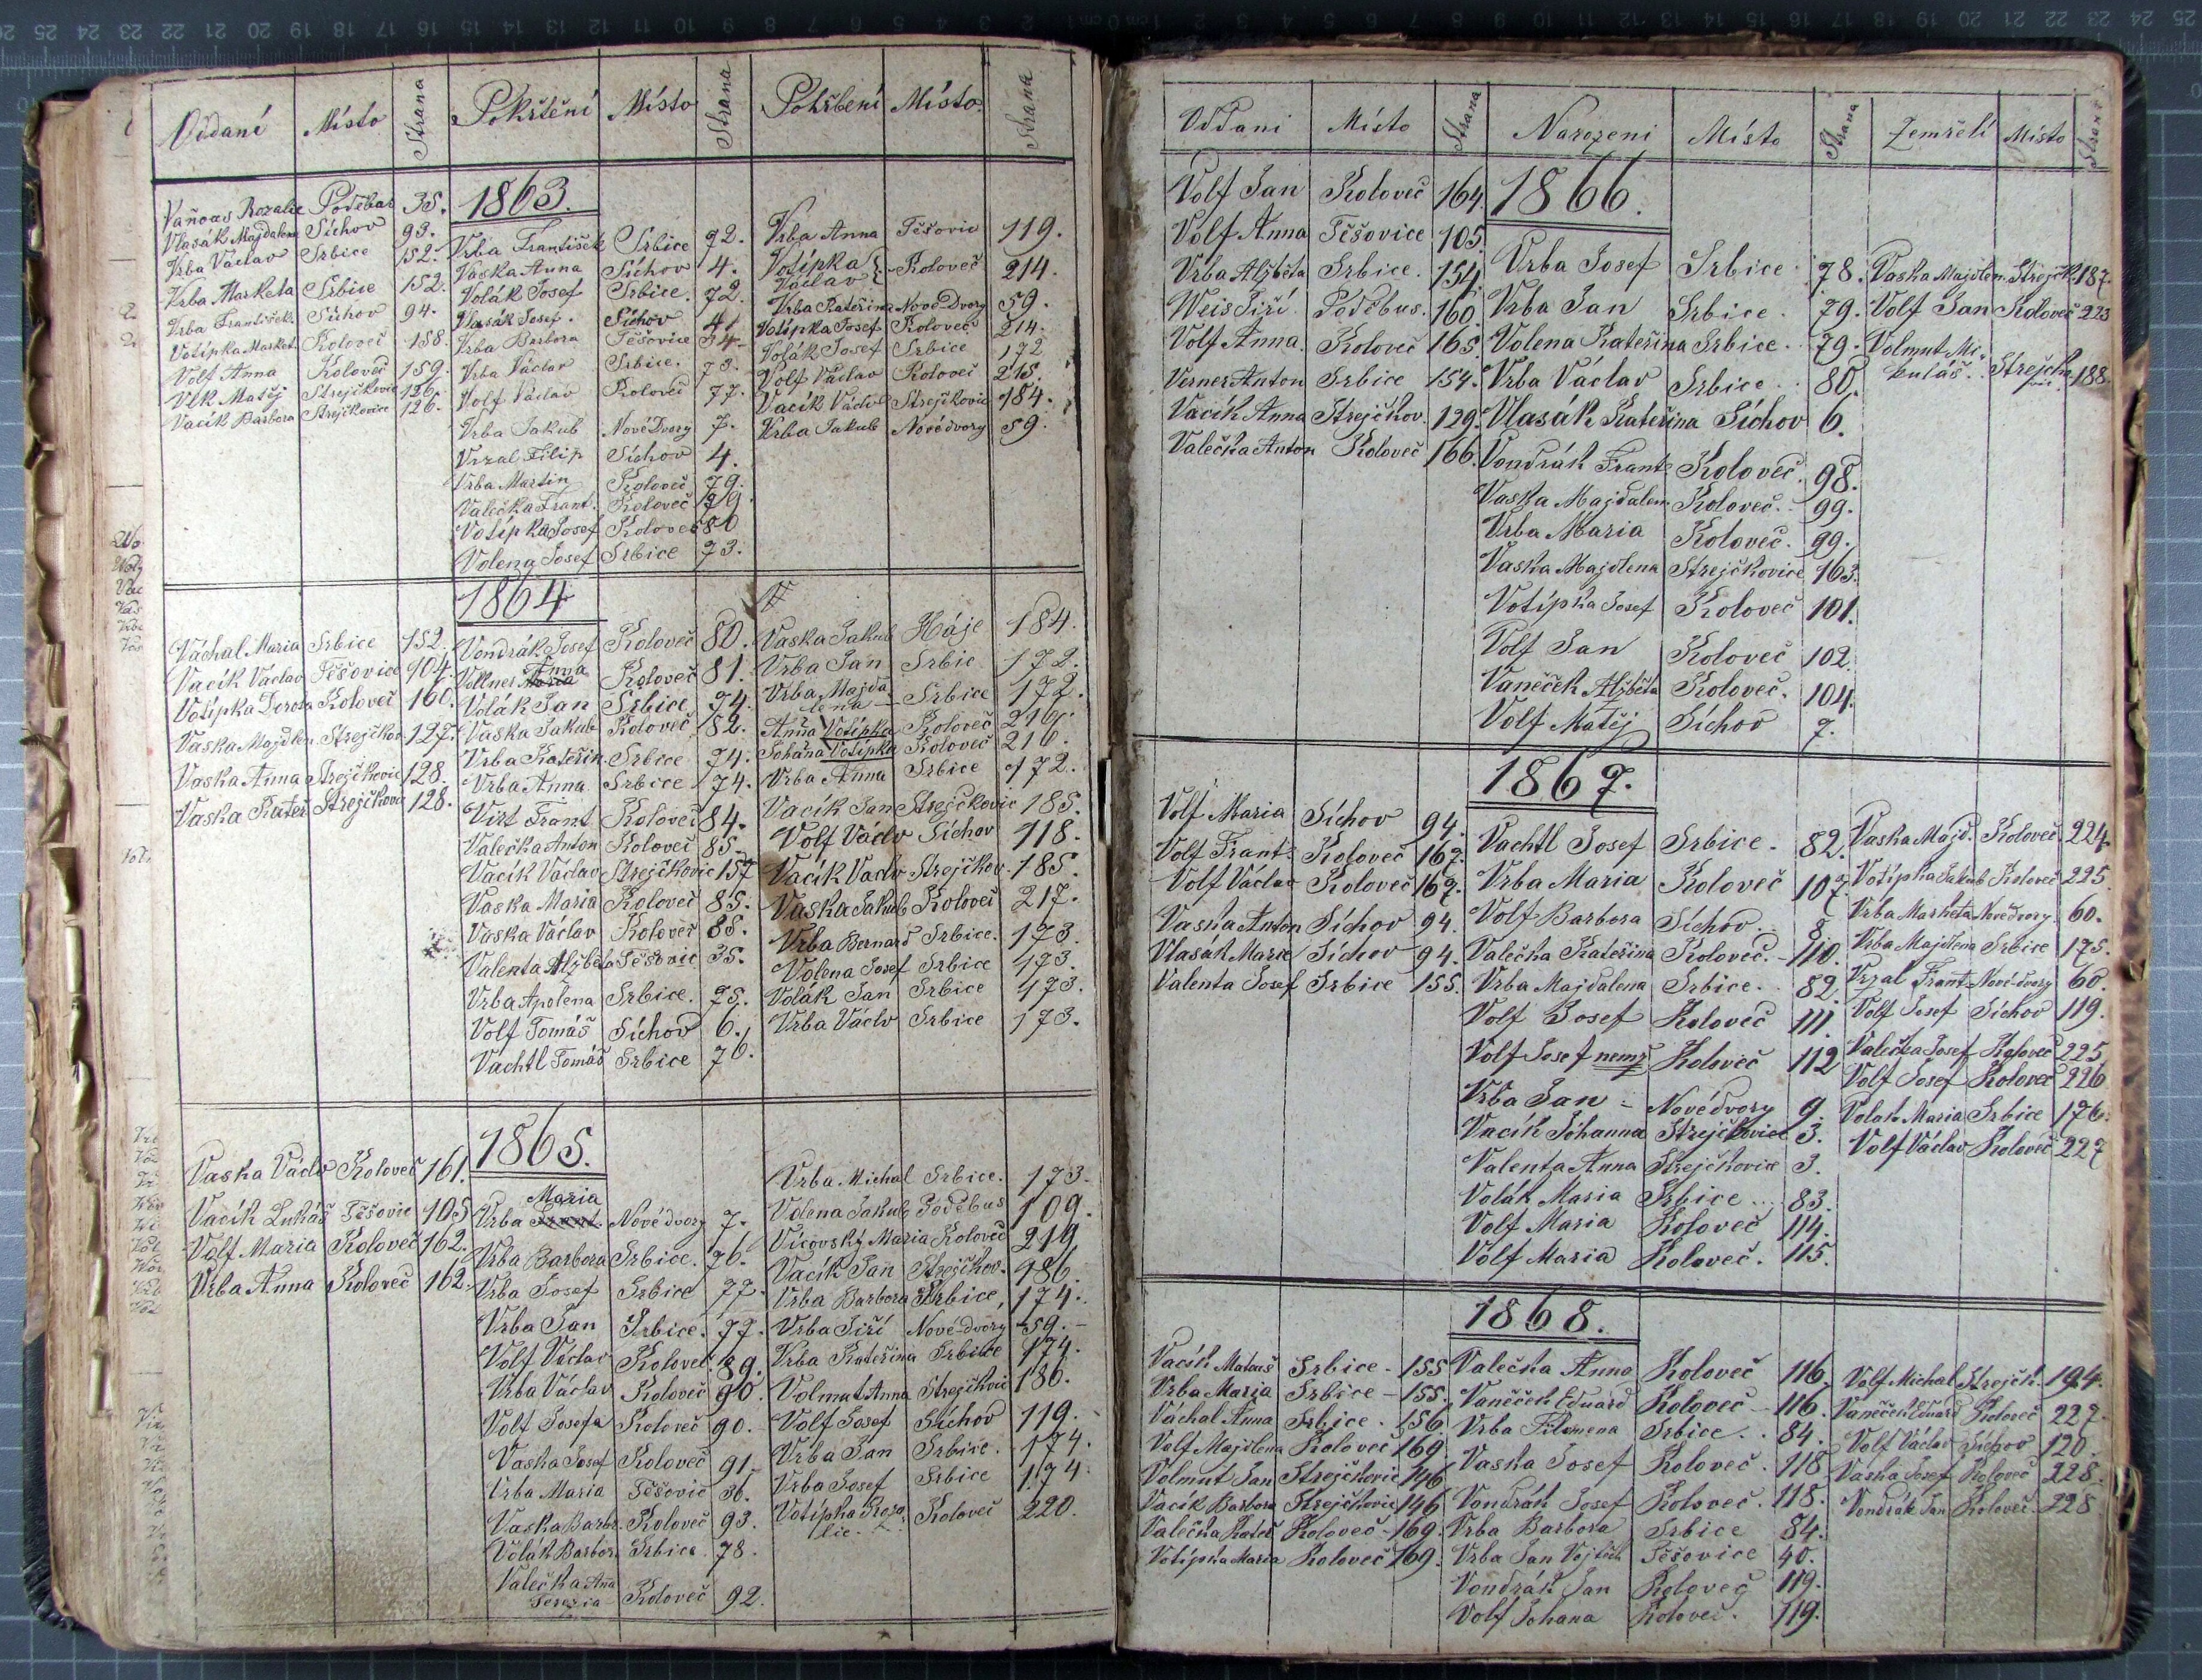 Oddaní Místo Strana Pokřtění Místo Strana Pohřbení Místo Strana
1863.
Vaňous Rozalie Poděbus 35.
Vlasák Majdalena Síchov 93.
Vrba Václav Srbice 152.
Vrba Marketa Srbice 152.
Vrba František Síchov 94.
Votípka Market. Koloveč 158.
Volf Anna Koloveč 159.
Vlk Matěj Strejčkovic 126.
Vacík Barbora Strejčkovice 126.
Vrba František Srbice 72.
Vaska Anna Síchov 4.
Volák Josef Srbice. 72.
Vlasák Josef. Síchov 4.
Vrba Barbora Těšovice 34.
Vrba Václav Srbice. 73.
Volf Václav Koloveč 77.
Vrba Jakub Nové Dvory 7.
Vrzal Filip Síchov 4.
Vrba Martin Koloveč 79.
Valečka Frant. Koloveč 79.
Votípka Josef Koloveč 80
Volena Josef Srbice 73.
Vrba Anna Těšovic 119.
Votípka Václav Koloveč 214.
Vrba Kateřina Nové Dvory 59.
Votípka Josef Koloveč 214.
Volák Josef Srbice 172
Volf Václav Koloveč 215.
Vacík Václv Strejčkovic 184.
Vrba Jakub Novédvory 59.
1864
Váchal Maria Srbice 152.
Vacík Václav Těšovice 104.
Votípka Dorota Koloveč 160.
Vaska Majdlen Strejčkov 127.
Vaska Anna Strejčkovic 128.
Vaska Kateř Strejčkovic 128.
Vondrák Josef Koloveč 80.
Vollner Anna Koloveč 81.
Volák Jan Srbice 74.
Vaska Jakub Koloveč 82.
Vrba Kateřin. Srbice 74.
Vrba Anna. Srbice 74.
Virt Frant Koloveč 84.
Valečka Anton Koloveč 85.
Vacík Václav Strejčkovic 157
Vaska Maria Koloveč 85.
Vaska Václav Koloveč 85.
Valenta Alžběta Těšovic 35.
Vrba Apolena Srbice. 75.
Volf Tomáš Síchov 6.
Vachtl Tomáš Srbice 76.
Vaska Jakub Háje 184.
Vrba Jan Srbic 172.
Vrba Majdalena Srbice 172.
Anna Votípka Koloveč 216.
Johana Votípka Koloveč 216.
Vrba Anna Srbice 172.
Vacík Jan Strejčkovic 185.
Volf Václv Síchov 118.
Vacík Vaclv Strejčkov. 185.
Vaska Jakub Koloveč 217.
Vrba Bernard Srbice. 173.
Volena Josef Srbice 173.
Volák Jan Srbice 173.
Vrba Václv Srbice 173.
1865.
Vaska Václv Koloveč 161.
Vacík Lukáš Těšovic 105
Volf Maria Koloveč 162.
Vrba Anna Koloveč 162.
Maria
Vrba Frant. Nové dvory 7.
Vrba Barbora Srbice. 76.
Vrba Josef Srbice 77.
Vrba Jan Srbice. 77.
Volf Václav Koloveč 89.
Vrba Václav Koloveč 90.
Volf Josefa Koloveč 90.
Vaska Josef Koloveč 91.
Vrba Maria Těšovic 36.
Vaska Barbr. Koloveč 93.
Volák Barbora Srbice 78.
Valečka Aña Terezia Koloveč 92.
Vrba Michal Srbice. 173.
Volena Jakub Poděbus 109.
Vícovský Maria Koloveč 219
Vacík Jan Strejčkov. 186.
Vrba Barbora Srbice, 174.
Vrba Jiří Nové-dvory 59.
Vrba Kateřina Srbice 174.
Volmut Anna Strejčkovic 186.
Volf Josef Síchov 119.
Vrba Jan Srbice. 174.
Vrba Josef Srbice 174.
Votípka Rozalie. Koloveč 220.
Oddani Místo Strana Narozeni Místo Strana Zemřelí Místo Strana
1866.
Volf Jan Koloveč 164.
Volf Anna Těšovice 105.
Vrba Alžběta Srbice. 154.
Weis Jiří Poděbus. 160.
Volf Anna. Koloveč 165.
Verner Anton Srbice 154.
Vacík Anna Strejčkov. 129.
Valečka Anton Koloveč 166.
Vrba Josef Srbice 78.
Vrba Jan Srbice. 79.
Volena Kateřina Srbice. 79.
Vrba Václav Srbice. 80.
Vlasák Kateřina Síchov 6.
Vondrák Frant. Koloveč. 98.
Vaska Majdalen. Koloveč. 99.
Vrba Maria Koloveč. 99.
Vaska Majdlena Strejčkovice 163.
Votípka Josef Koloveč 101.
Volf Jan Koloveč 102.
Vaněček Alžběta Koloveč. 104.
Volf Matěj Síchov 7.
Vaska Majdlen. Strejčk 187.
Volf Jan Koloveč 223
Volmut Mikuláš. Strejčkovic 188
1867.
Volf Maria Síchov 94.
Volf Frant. Koloveč 167.
Volf Václav Koloveč 167.
Vaska Anton Síchov 94.
Vlasák Marie Síchov 94.
Valenta Josef Srbice 155.
Vachtl Josef Srbice. 82.
Vrba Maria Koloveč 107.
Volf Barbora Síchov. 8.
Valečka Kateřina Koloveč. 110.
Vrba Majdalena Srbice. 82.
Volf Josef Koloveč 111.
Volf Josef nemž Koloveč 112
Vrba Jan Novédvory 9.
Vacík Johanna Strejčkovice 3.
Valenta Anna Strejčkovice 3.
Volák Maria Srbice 83.
Volf Maria Koloveč 114.
Volf Maria Koloveč. 115.
Vaska Majd. Koloveč 224.
Votípka Jakub Koloveč 225.
Vrba Marketa Novédvory 60.
Vrba Majdlena Srbice 175.
Vrzal Frant Nové-dvory 60.
Volf Josef Síchov 119.
Valečka Josef Koloveč 225
Volf Josef Koloveč 226
Volák Maria Srbice 176.
Volf Václav Koloveč 227
1868.
Vacík Matouš Srbice - 155
Vrba Maria Srbice - 155.
Váchal Anna Srbice. 156.
Volf Majdlena Koloveč 169.
Volmut Jan Strejčkovic 146
Vacík Barbora Strejčkovic 146
Valečka Kateř Koloveč - 169.
Votípka Maria Koloveč 169.
Valečka Anna Koloveč 116.
Vaněček Eduard Koloveč 116.
Vrba Filomena Srbice. 84.
Vaska Josef Koloveč. 118
Vondrák Josef Koloveč. 118.
Vrba Barbora Srbice 84.
Vrba Jan Vojtěch Těšovice 40.
Vondrák Jan Koloveč 119.
Volf Johana Koloveč. 119.
Volf Michal Strejčk. 194.
Vaněček Eduard Koloveč 227.
Volf Václav Síchov 120.
Vaska Josef Koloveč 228.
Vondrák Jan Koloveč. 228